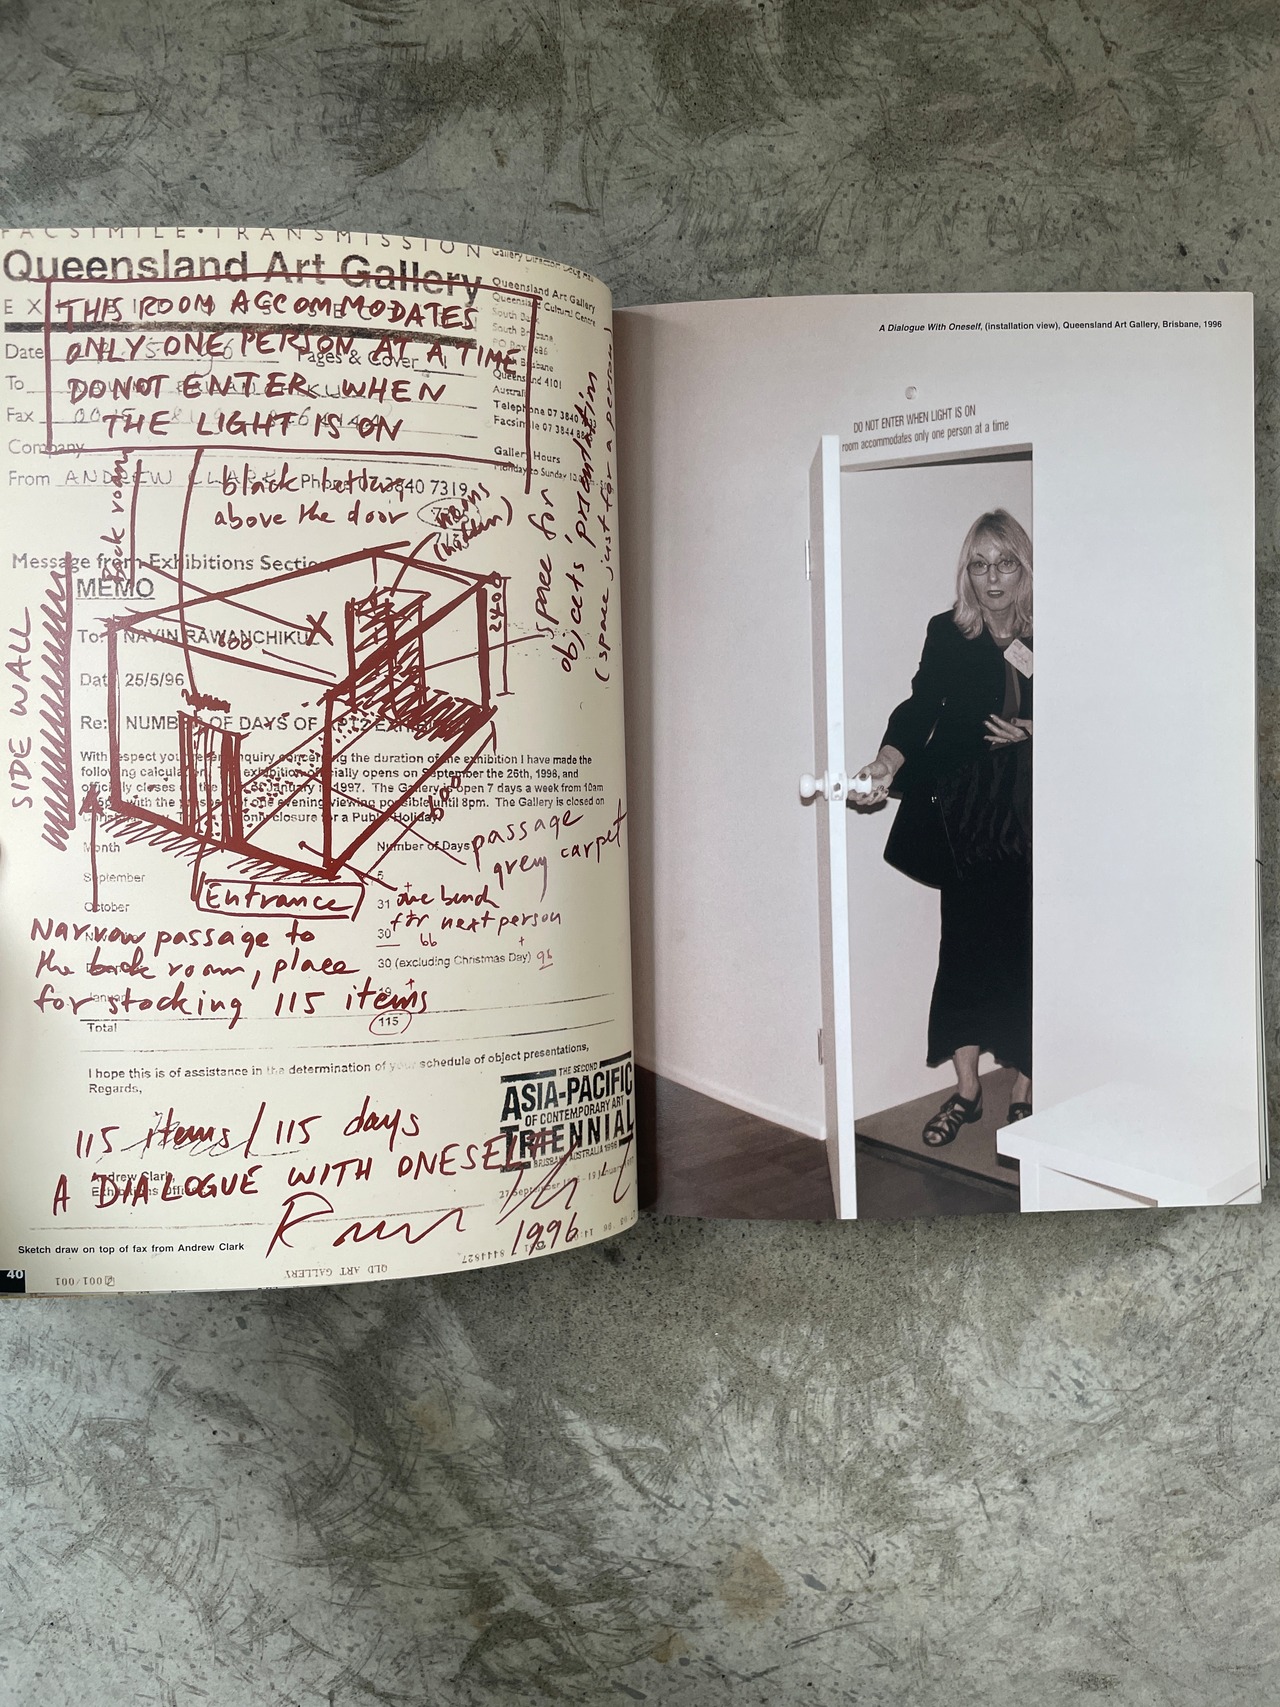 FACSIMILE • TRANSMISSION
Queensland Art Gallery
Queensland Art Gallery
Queensland Cultural Centre
South
South
Queensland 4101
Telephone 07 3840
Facsimile 07 3844
Gallery Hours
THIS ROOM ACCOMMODATES
ONLY ONE PERSON AT A TIME
DO NOT ENTER WHEN
THE LIGHT IS ON
Date
Pages & Cover
To
Fax
Company
From ANDREW CLARK Phone 3840 7319
black lettering
above the door
back room
space for
objects presentation
(space just for a person)
Message from Exhibitions Section
MEMO
To: NAVIN RAWANCHIKUL
600
2400
SIDE WALL
Date 25/5/96
Re: NUMBER OF DAYS OF APT2
With respect your inquiry concerning the duration of the exhibition I have made the
following exhibition officially opens on September the 26th, 1996, and
officially closes of January 1997. The Gallery is open 7 days a week from 10am
with the of one evening viewing possible until 8pm. The Gallery is closed on
only closure for a Public Holiday.
600
passage
grey carpet
Month Number of Days
September 5
October 31
30
30 (excluding Christmas Day) 96
Total 115
Entrance
one bench
for next person
66
Narrow passage to
the back room, place
for stocking 115 items
I hope this is of assistance in the determination of your schedule of object presentations,
Regards,
115 items / 115 days
A DIALOGUE WITH ONESELF
1996
Andrew Clark
THE SECOND
ASIA-PACIFIC
OF CONTEMPORARY ART
TRIENNIAL
BRISBANE AUSTRALIA 1996
Sketch draw on top of fax from Andrew Clark
40
001/001
QLD ART GALLERY
A Dialogue With Oneself, (installation view), Queensland Art Gallery, Brisbane, 1996
DO NOT ENTER WHEN LIGHT IS ON
room accommodates only one person at a time